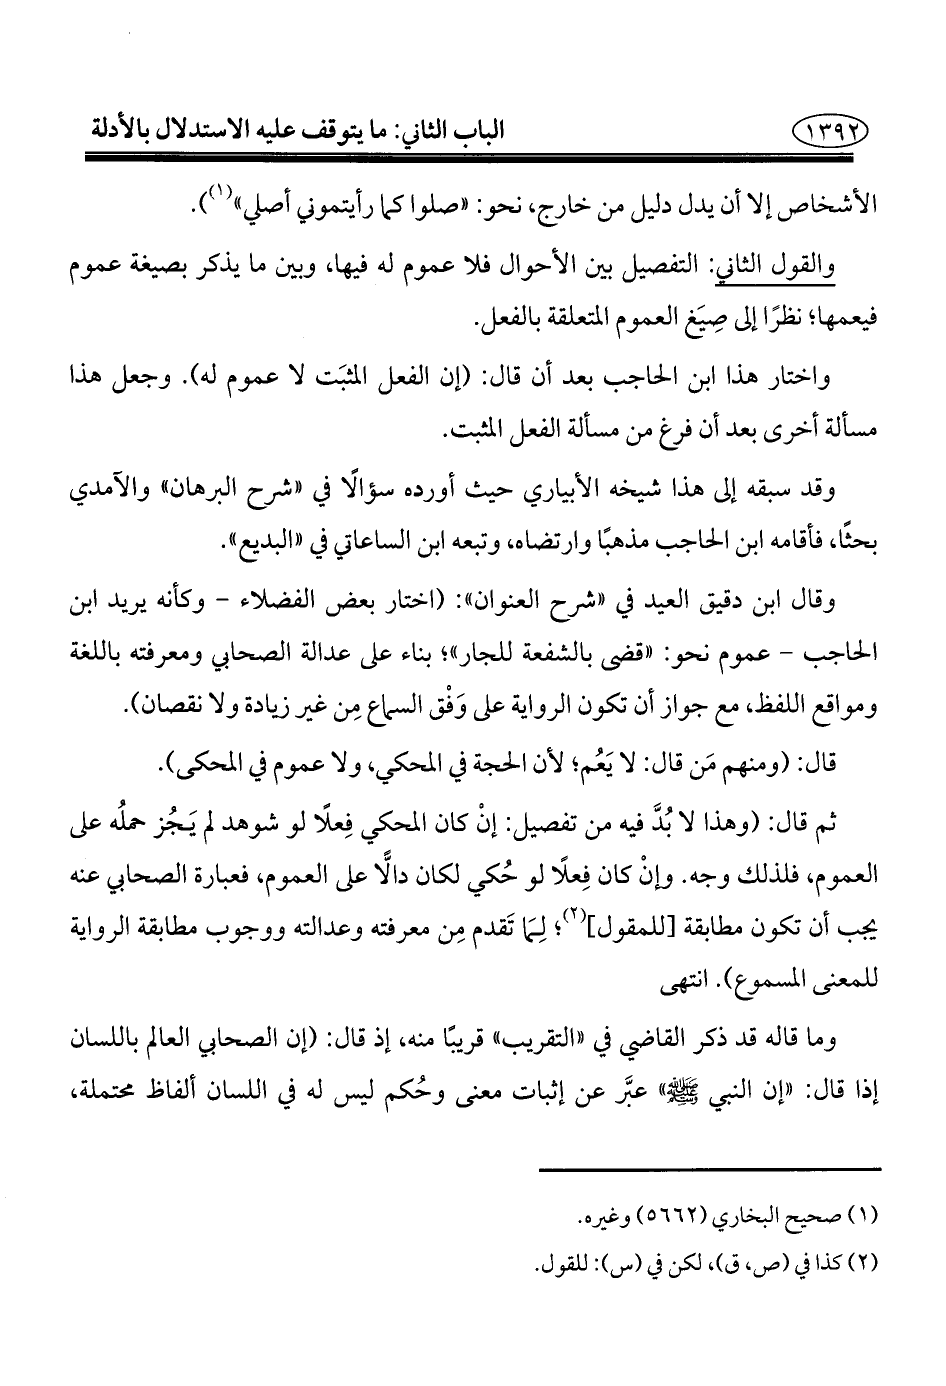 ١٣٩٢ الباب الثاني: ما يتوقف عليه الاستدلال بالأدلة
الأشخاص إلا أن يدل دليل من خارج، نحو: «صلوا كما رأيتموني أصلي»(١)).
والقول الثاني: التفصيل بين الأحوال فلا عموم له فيها، وبين ما يذكر بصيغة عموم
فيعمها؛ نظرًا إلى صِيَغ العموم المتعلقة بالفعل.
واختار هذا ابن الحاجب بعد أن قال: (إن الفعل المثبَت لا عموم له). وجعل هذا
مسألة أخرى بعد أن فرغ من مسألة الفعل المثبت.
وقد سبقه إلى هذا شيخه الأبياري حيث أورده سؤالًا في «شرح البرهان» والآمدي
بحثًا، فأقامه ابن الحاجب مذهبًا وارتضاه، وتبعه ابن الساعاتي في «البديع».
وقال ابن دقيق العيد في «شرح العنوان»: (اختار بعض الفضلاء – وكأنه يريد ابن
الحاجب – عموم نحو: «قضى بالشفعة للجار»؛ بناء على عدالة الصحابي ومعرفته باللغة
ومواقع اللفظ، مع جواز أن تكون الرواية على وَفْق السماع مِن غير زيادة ولا نقصان).
قال: (ومنهم مَن قال: لا يَعُم؛ لأن الحجة في المحكي، ولا عموم في المحكى).
ثم قال: (وهذا لا بُدَّ فيه من تفصيل: إنْ كان المحكي فِعلًا لو شوهد لم يَجُز حملُه على
العموم، فلذلك وجه. وإنْ كان فِعلًا لو حُكي لكان دالًّا على العموم، فعبارة الصحابي عنه
يجب أن تكون مطابقة [للمقول](٢)؛ لِمَا تَقدم مِن معرفته وعدالته ووجوب مطابقة الرواية
للمعنى المسموع). انتهى
وما قاله قد ذكر القاضي في «التقريب» قريبًا منه، إذ قال: (إن الصحابي العالم باللسان
إذا قال: «إن النبي ﷺ» عبَّر عن إثبات معنى وحُكم ليس له في اللسان ألفاظ محتملة،
(١) صحيح البخاري (٥٦٦٢) وغيره.
(٢) كذا في (ص، ق)، لكن في (س): للقول.